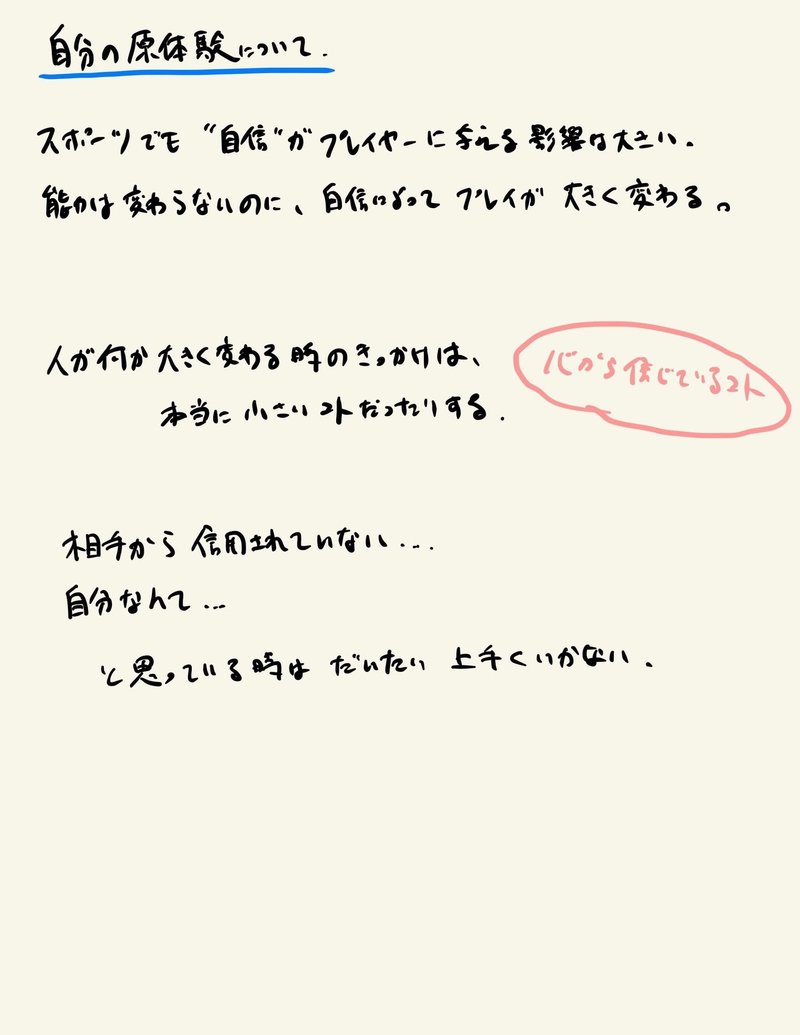 自分の原体験について.
スポーツでも "自信"が プレイヤーに与える影響は大きい.
能力は変わらないのに、自信によって プレイが 大きく変わる。
人が何か大きく変わる時のきっかけは、
本当に小さいコトだったりする.
心から信じているコト
相手から信用されていない...
自分なんて...
と思っている時は だいたい 上手くいかない.